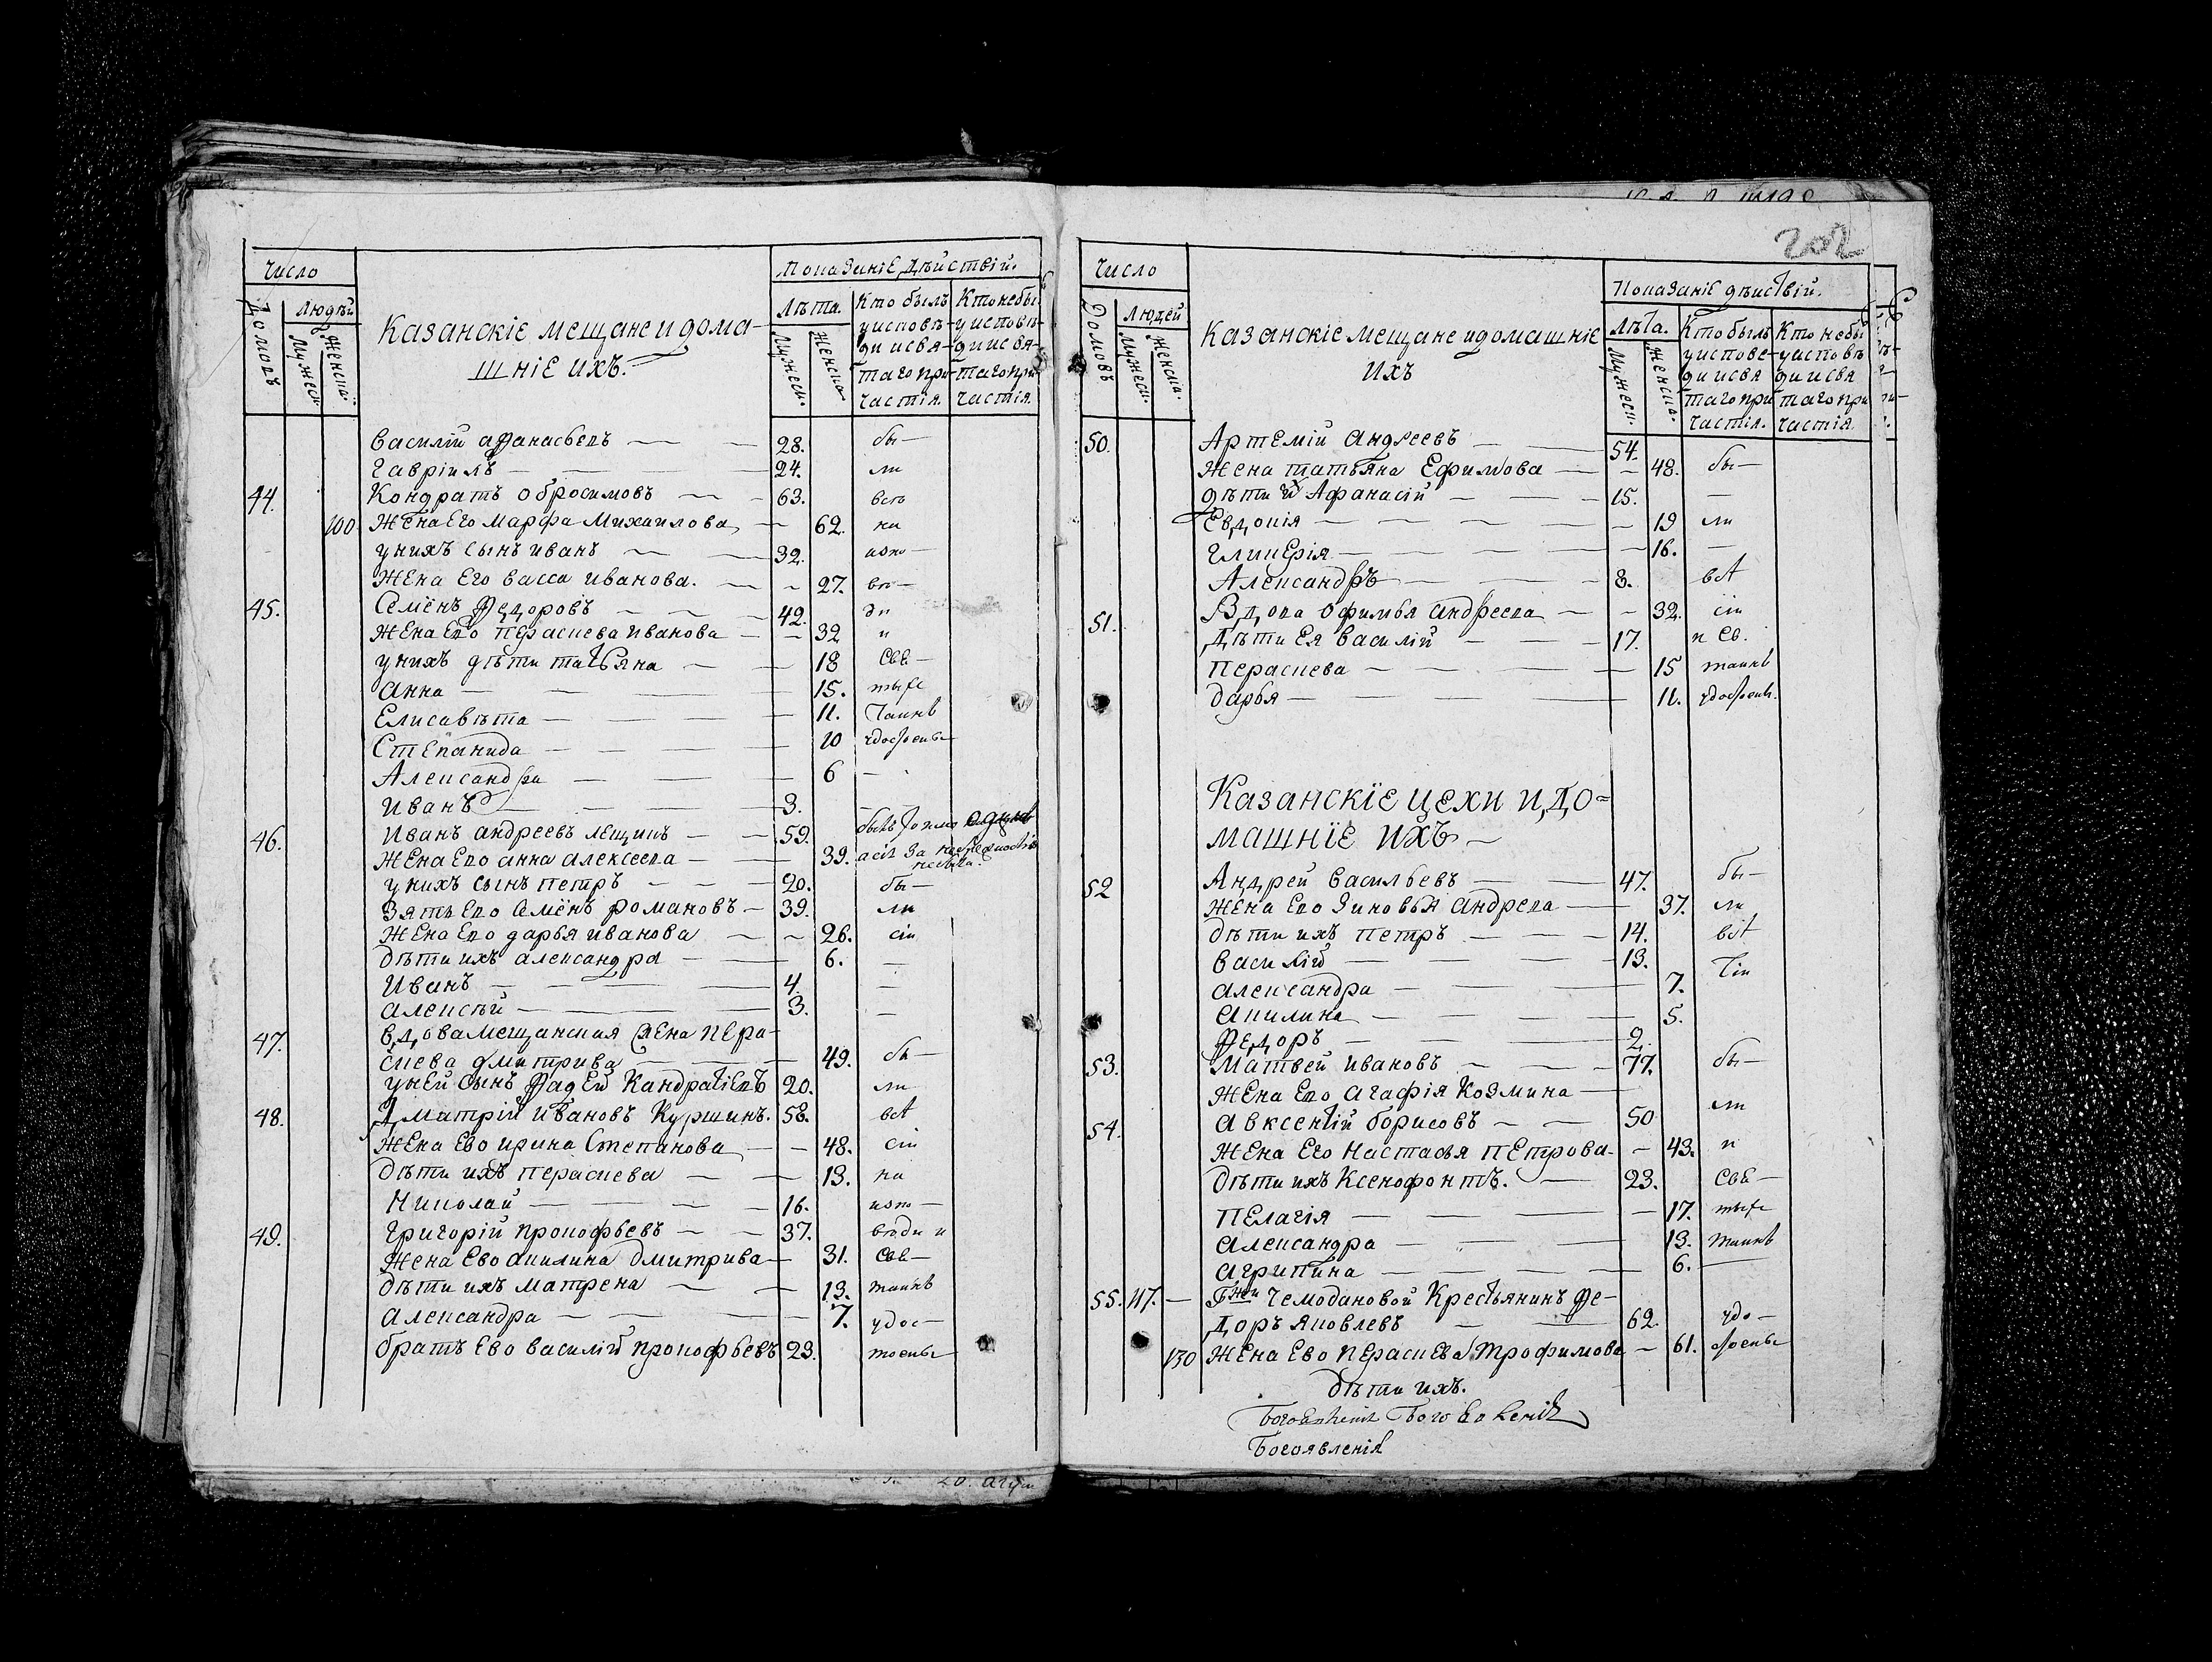 Число
Показанiе дѣйствiй.
Домовъ
Людѣй
Мужеск.
Женска.
Казанскiе мещане и дома-
шнiе ихъ.
Лѣта.
Мужеск.
Женска.
Кто былъ
у исповѣ-
ди и свя-
таго при-
частiя.
Кто небы
у исповѣ-
ди и свя-
таго при-
частiя.
Василiй афанасьевъ 28. бы-
Гаврiилъ 24. ли
44. Кондратъ обросимовъ 63. всѣ
100 Жена Его марфа михаилова 62. на
у нихъ сынъ иванъ 32. испо-
Жена Его васса иванова. 27. вѣ-
45. Семёнъ Федоровъ 42. ди
Жена Ево Параскева иванова 32 и
у нихъ дѣти татьяна 18 Свя-
анна 15. тыхъ
Елисавѣта 11. Таинъ
Степанида 10 удостоены
Александра 6 -
Иванъ 3.
46. Иванъ андреевъ лещинъ 59.
Жена Ево анна алексеева 39.
у нихъ сынъ петръ 20. бы-
Зять Ево Семёнъ романовъ 39. ли
Жена Ево дарья иванова 26. сiи
дѣти ихъ александра 6. -
Иванъ 4. -
алексѣй 3. -
47. вдова мещанская жена Пера-
скева дмитрива 49. бы-
у ней сынъ Фадей Кандратiевъ 20. ли
48. Дматрiй ивановъ Куршинъ. 58. всѣ
Жена Ево ирина Степанова 48. сiи
дѣти ихъ параскева 13. на
Николай 16. испо-
49. Григорiй прокофьевъ 37. вѣди и
Жена Ево акилина дмитрива 31. Свя-
дѣти ихъ матрена 13. таинъ
александра 7. удос-
братъ Ево василiй прокофьевъ 23. тоены
202
Число
Показанiе дѣиствiй.
Домовъ
Людей
Мужеск.
Женска.
Казанскiе мещане и домашнiе
ихъ
Лѣта.
Мужеск.
Женска.
Кто былъ
у испове-
ди и свя
таго при
частiя.
Кто небы
у исповѣ
ди и свя
таго при
частiя
50. Артемiй андреевъ 54.
Жена татьяна Ефимова 48. бы-
дѣти их Афанасiй 15. -
Евдокiя 19 ли
Гликерiя 16. -
Александръ 8. всѣ
51. Вдова офимья андреева 32. сiи
Дѣти Ея василiй 17. и Св.
Параскева 15 таинъ
дарья 11. удостоены.
Казанскiе цехи и до=
машнiе ихъ
52 Андрей васильевъ 47. бы-
Жена Ево Зиновья андреева 37. ли
дѣти ихъ петръ 14. всѣ
василiй 13.
александра 7. Сiи
акилина 5.
Федоръ 2.
53. Матвей ивановъ 77. бы-
Жена Ево агафiя Козмина
54. авксентiй борисовъ 50 ли
Жена Его Настасья петрова 43. и
дѣти ихъ Ксенофонтъ. 23. Свя-
Пелагiя 17. тыхъ
александра 13. таинъ
агрипина 6.
55. 117. Гжи Чемодановой Крестьянинъ Фе-
доръ яковлевъ 62. удо-
130 Жена Ево Параскева Трофимова 61. стоены
дѣти ихъ.
Богоявленiя